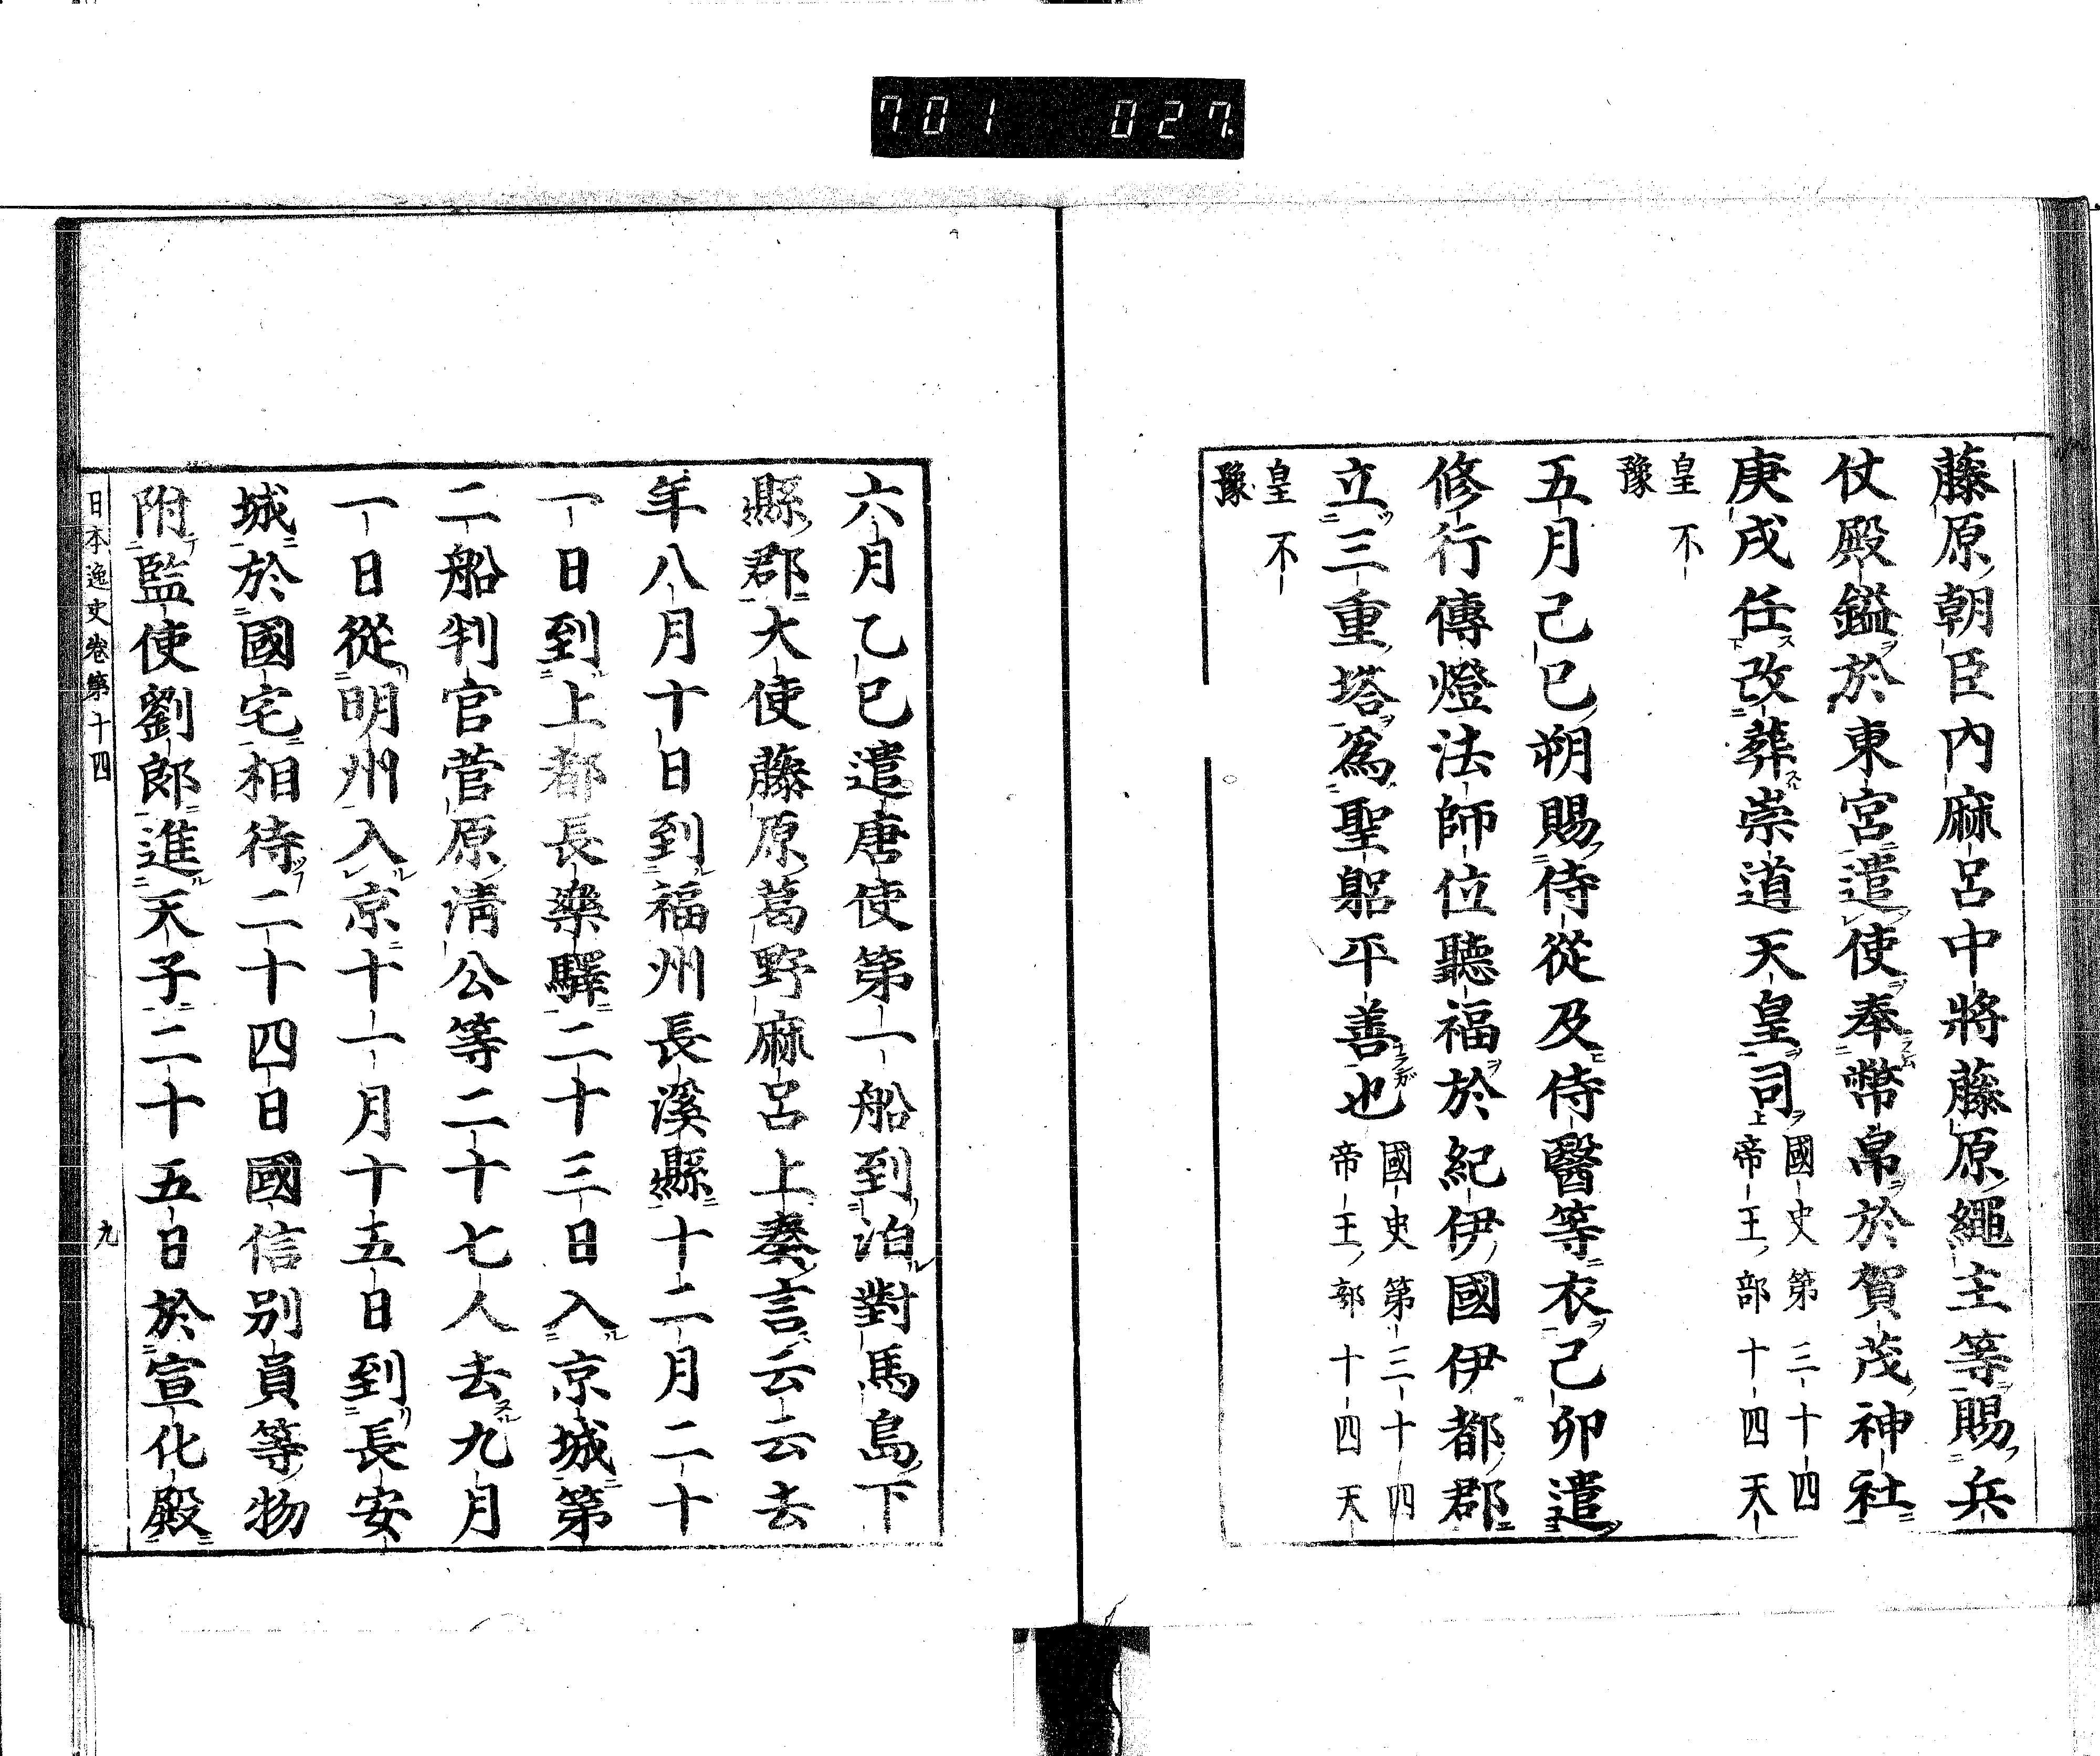 701 027
藤原朝臣內麻呂中將藤原繩主等賜兵
仗殿鎰於東宮遣使奉幣帛於賀茂神社
庚戌任改葬崇道天皇司國史第三十四
帝王部十四天
皇不
豫
五月己巳朔賜侍從及侍醫等衣己卯遣
修行傳燈法師位聽福於紀伊國伊都郡
立三重塔爲聖躬平善也國史第三十四
帝王部十四天
皇不
豫
六月乙巳遣唐使第一船到泊對馬島下
縣郡大使藤原葛野麻呂上奏言云云去
年八月十日到福州長溪縣十二月二十
一日到上都長樂驛二十三日入京城第
二船判官菅原清公等二十七人去九月
一日從明州入京十一月十五日到長安
城於國宅相待二十四日國信別貢等物
附監使劉郎進天子二十五日於宣化殿
日本逸史卷第十四
九